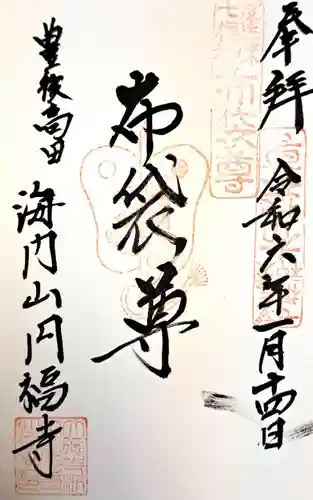 奉拝
令和六年一月十四日
布袋尊
豊後高田
海内山円福寺